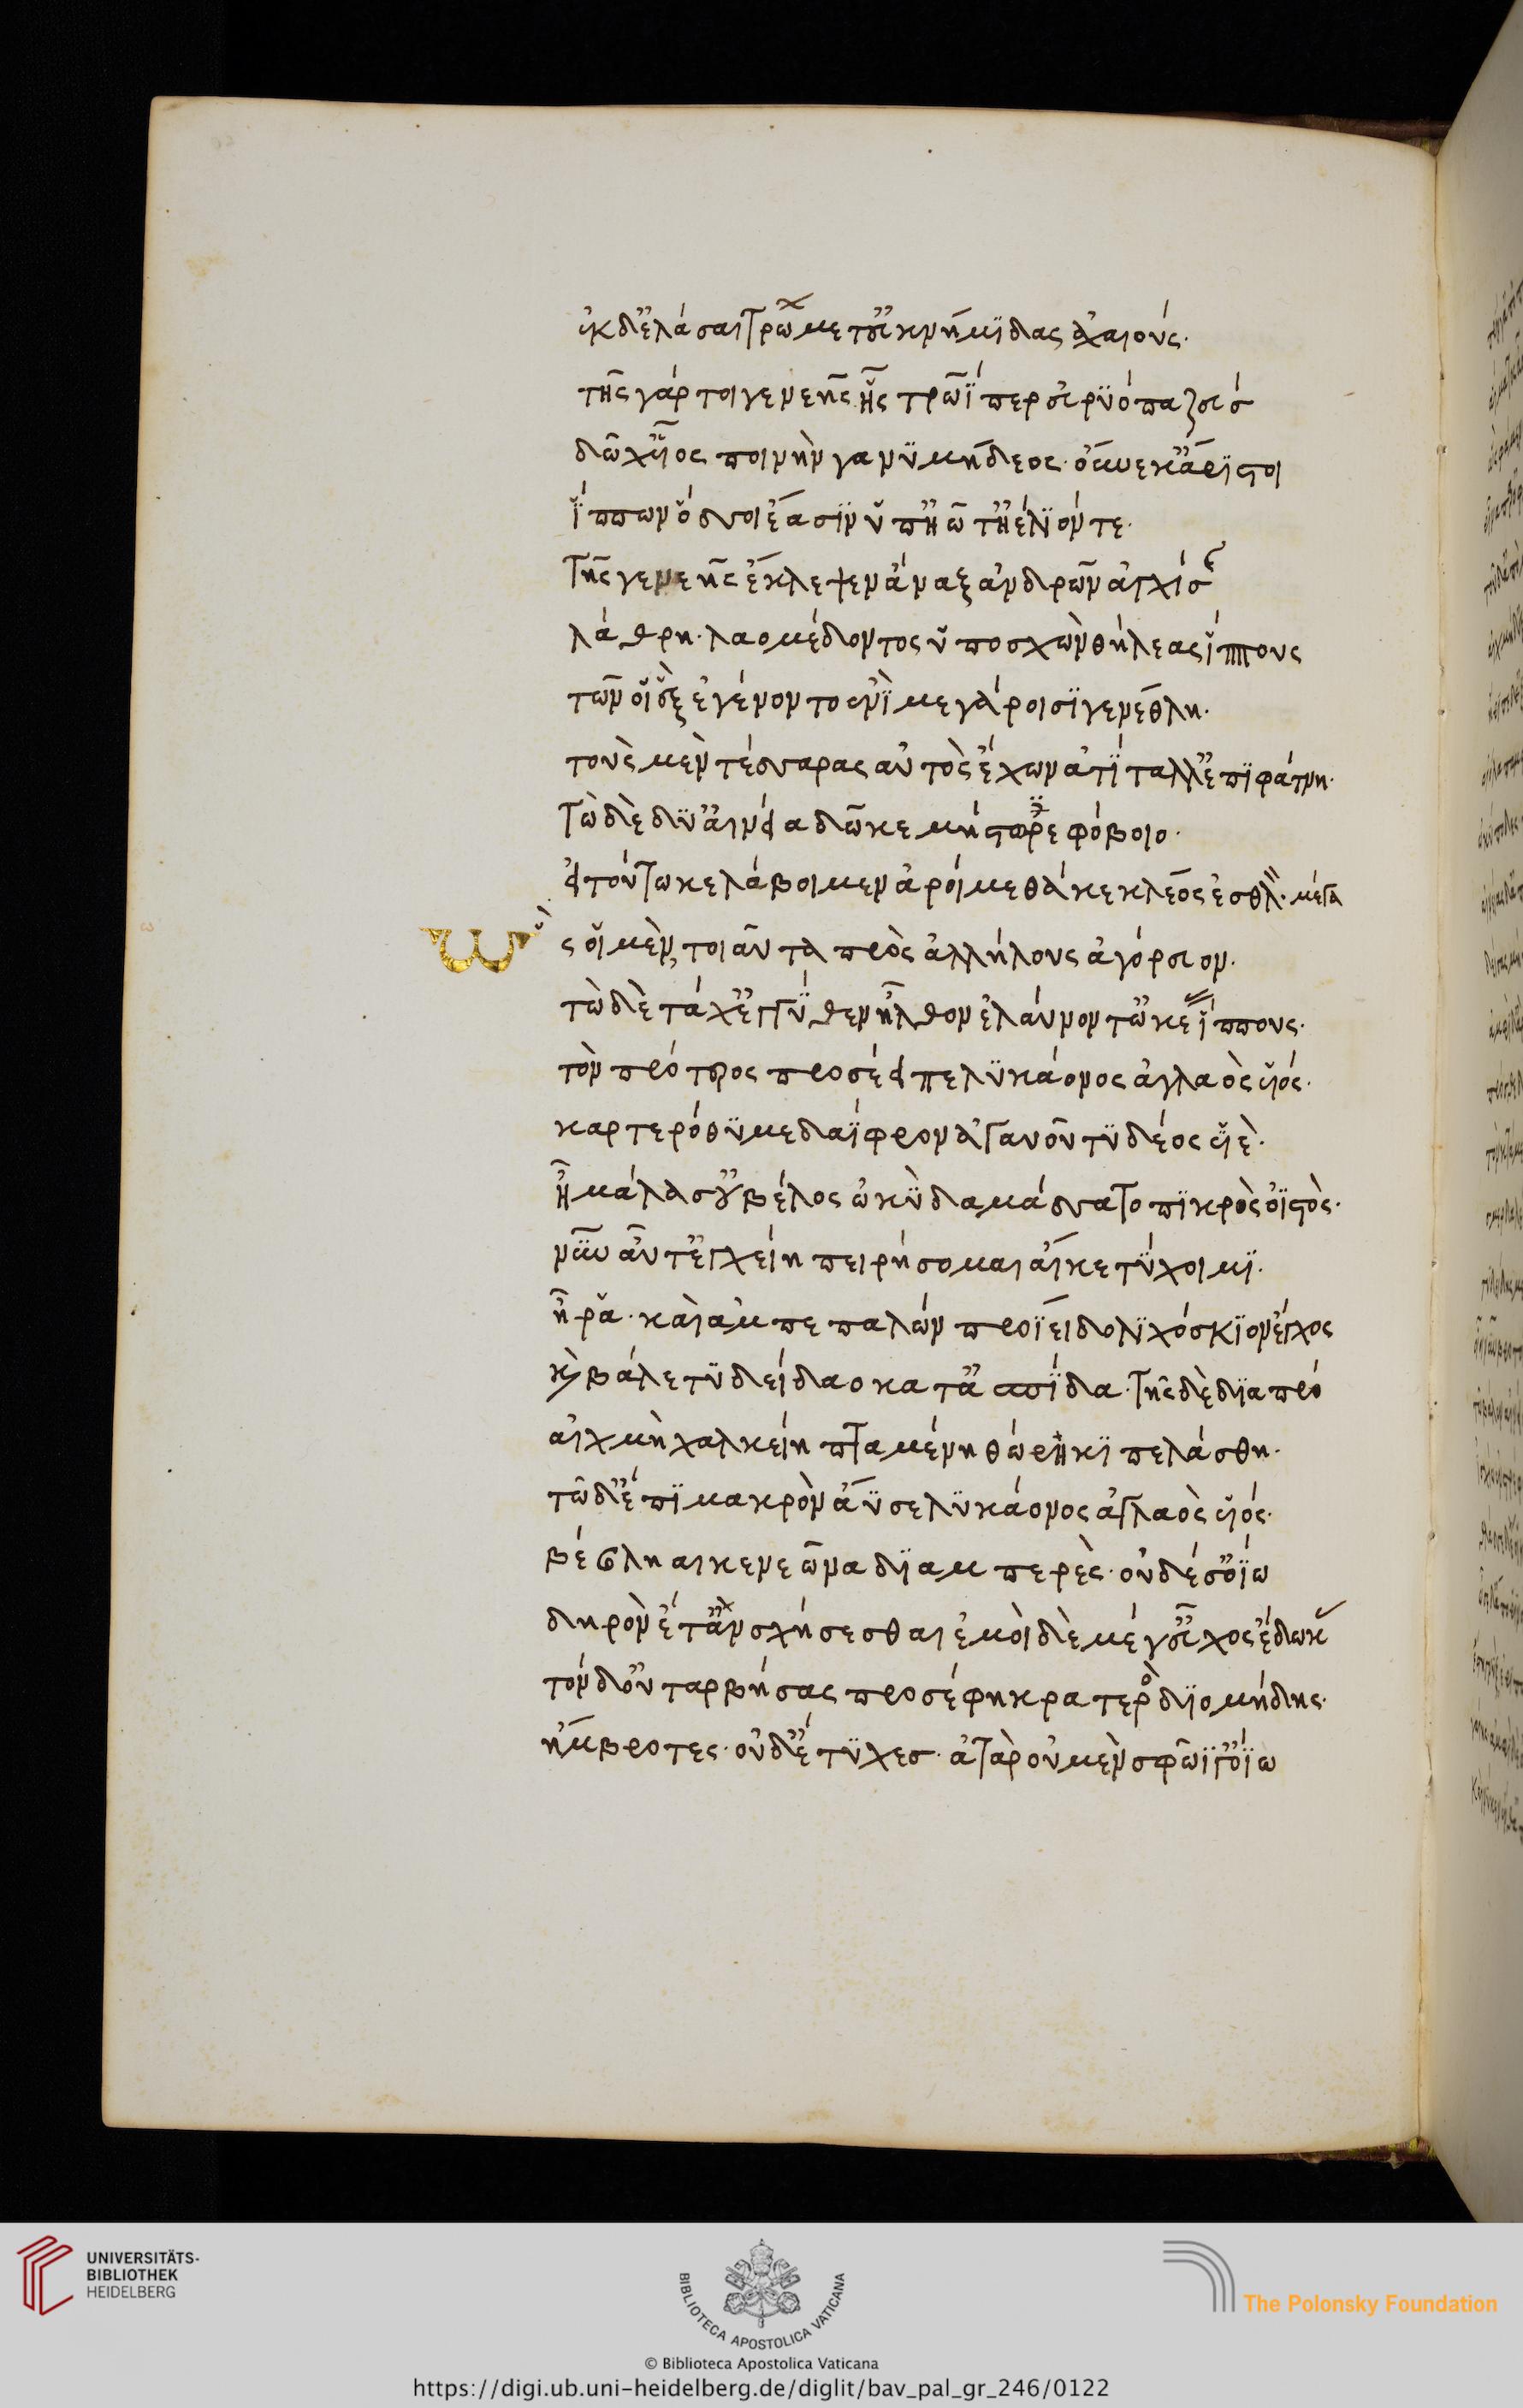 ἐκ δ' ἐλάσαι Τρώων μετ' ἐϋκνήμϊδας ἀχαιούς·
τῆς γάρ τοι γενεῆς ἧς τρωΐ περ εὐρϋόπα ζεύσ
δῶχ' υἷος ποινὴν γανϋμήδεος· οὕνεκ' ἄρϊστοι
ἵππων ὅσσοι ἔασϊν ὑπ' ἠῶ τ' ἠέλϊόν τε·
Τῆς γενεῆς ἔκλεψεν ἄναξ ἀνδρῶν ἀγχίσης
λάθρη· λαομέδοντος ὑποσχὼν θήλεας ἵππους
τῶν οἱ ἓξ ἐγένοντο ἐνὶ μεγάροισϊ γενέθλη·
τοὺς μὲν τέσσαρας αὐτὸς ἔχων ἀτΐταλλ' ἐπϊ φάτνη·
Τὼ δὲ δύ' αἰνεία δῶκε μήστωρε φόβοιο·
εἰ τούτω κε λάβοιμεν ἀροίμεθά κε κλέος ἐσθλόν· μέγα
ὣς οἱ μὲν τοιαῦτα πρὸς ἀλλήλους ἀγόρευον·
τὼ δὲ τάχ' ἐγγύθεν ἦλθον ἐλαύνοντ' ὠκέας ἵππους·
τὸν πρότερος προσέειπε λϋκάονος ἀγλαὸς υἱός·
καρτερόθϋμε δαΐφρον ἀγαυοῦ τϋδέος υἱὲ·
ἦ μάλα σ' οὐ βέλος ὠκὺ δαμάσσατο πϊκρὸς ὀϊστὸς·
νῦν αὖτ' ἐγχείη πειρήσομαι αἴκε τΰχοιμϊ·
ἦ ῥα· καὶ ἀμπεπαλὼν προΐει δολϊχόσκϊον ἔγχος
καὶ βάλε τϋδείδαο κατ' ἀσπΐδα· Τῆς δὲ δϊαπρό
αἰχμὴ χαλκείη πταμένη θώρηκϊ πελάσθη·
τῶ δ' ἐπϊ μακρὸν ἄϋσε λϋκάονος ἀγλαὸς υἱός·
βέβληαι κενεῶνα δϊαμπερὲς· οὐδέ σ' ὀΐω
δηρὸν ἔτ' ἀνσχήσεσθαι ἐμοὶ δὲ μέγ' εὖχος ἔδωκας
τὸν δ' οὐ ταρβήσας προσέφη κρατερὸς δϊομήδης·
ἤμβροτες· οὐδ' ἔτϋχες· ἀτὰρ οὐ μὲν σφῶϊ γ' ὀΐω
UNIVERSITÄTS-
BIBLIOTHEK
HEIDELBERG
BIBLIOTECA APOSTOLICA VATICANA
The Polonsky Foundation
© Biblioteca Apostolica Vaticana
https://digi.ub.uni-heidelberg.de/diglit/bav_pal_gr_246/0122